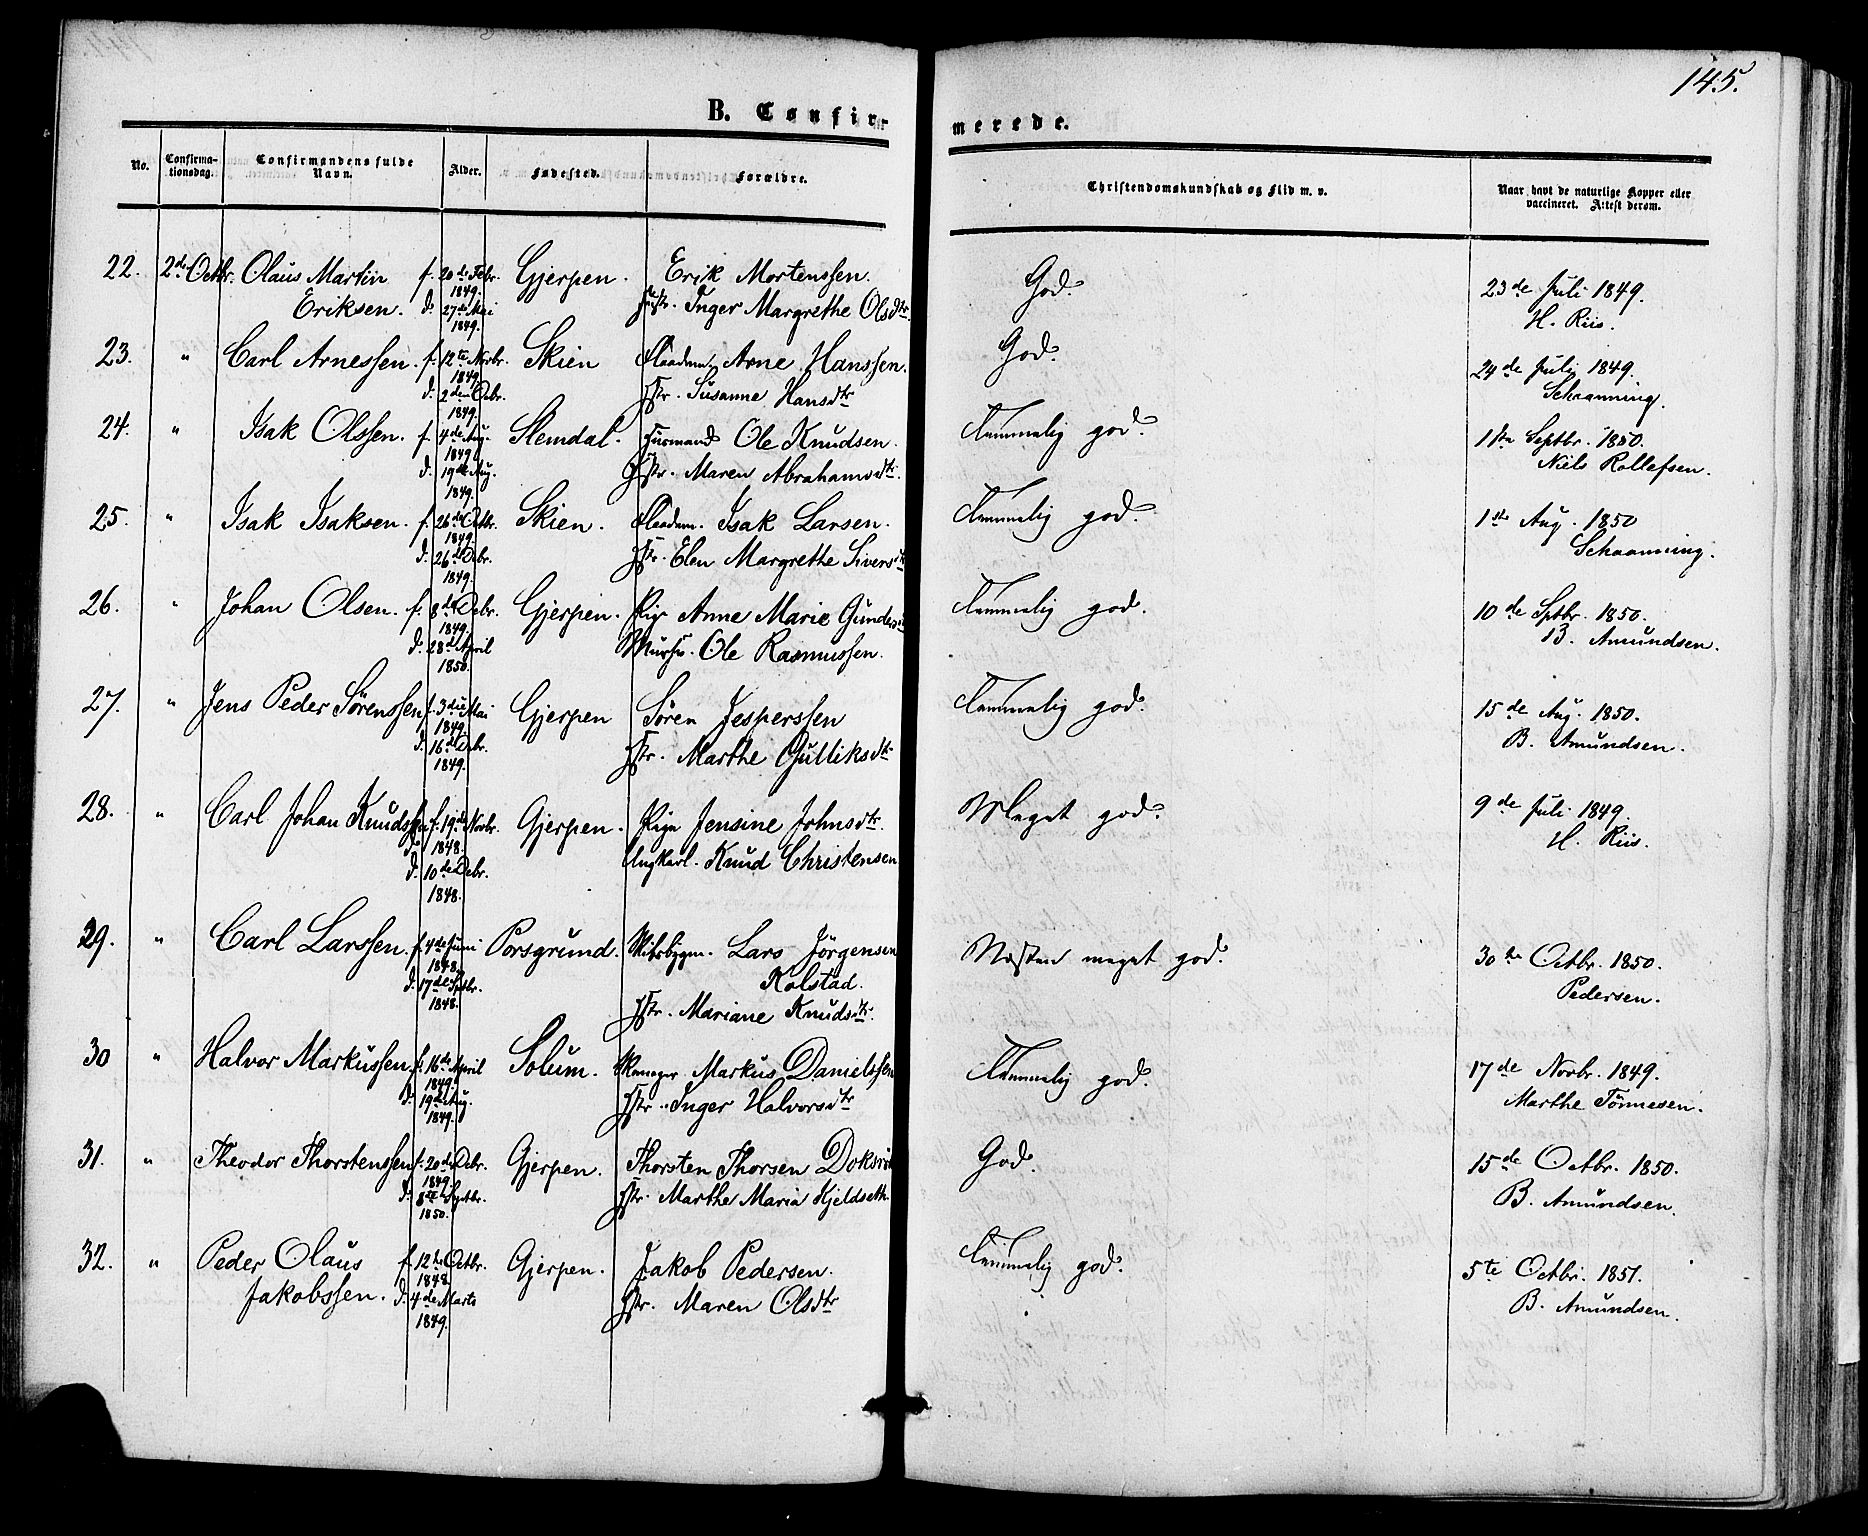 145.
B. Confir-
merede.
No.
Confirma-
tionsdag.
Confirmandens fulde
Navn.
Alder.
Fødested.
Forældre.
Christendomskundskab og Flid m. v.
Naar havt de naturlige Kopper eller
vaccineret. Attest derom.
22. 2de Octbr. Olaus Martin f. 20de Febr. Gjerpen. Erik Mortenssen. God. 23de Juli 1849.
1849.
Eriksen. d. 27de Mai Inger Margrethe Olsdtr. H. Riis.
1849.
23. " Carl Arnessen. f. 12te Novbr. Skien Arne Hanssen. God. 24de Juli 1849.
1849
d. 2den Debr. Hstr. Susanne Hansdtr Schaanning.
1849.
24. " Isak Olssen. f. 4de Aug. Slemdal. Huusmand Ole Knudsen. Temmelig god. 11te Septbr. 1850.
1849
d. 19de Aug. Hstr. Maren Abrahamsdtr. Niels Rollefsen.
1849.
25. " Isak Isaksen. f. 26de Octbr. Skien. Isak Larsen. Temmelig god. 1ste Aug. 1850
1849.
d. 26de Debr. Hstr. Elen Margrethe Siversdtr Schaanning.
1849.
26. " Johan Olsen. f. 8de Debr. Gjerpen. Pig Anne Marie Gundersd Temmelig god. 10de Sptbr. 1850.
1849.
d. 28de April Ole Rasmussen. B. Amundsen.
1850.
27. " Jens Peder Sörenssen f. 3die Mai Gjerpen Sören Jesperssen Temmelig god. 15de Aug. 1850.
1849.
d. 16de Debr. Hstr. Marthe Gulliksdtr B. Amundsen.
1849.
28. " Carl Johan Knudssen f. 19de Novbr. Gjerpen. Pige Jensine Johnsdtr. Meget god. 9de Juli 1849.
1848.
d. 10de Debr. Ungkarl. Knud Christensen H. Riis.
1848.
29. " Carl Larssen. f. 4de Juni Porsgrund. Lars Jörgensen Næsten meget god. 30te Octbr. 1850.
1848.
d. 17de Sptbr. Kolstad. Pedersen.
1848.
Hstr. Mariane Knudsdtr.
30 " Halvor Markussen. f. 16de April Solum. Markus Danielssen Temmelig god. 17de Novbr. 1849.
1849.
d. 19de Aug. Hstr. Inger Halvorsdtr Marthe Tönnesen.
1849.
31. " Theodor Thorstenssen f. 20de Debr. Gjerpen. Thorsten Thorsen God. 15de Octbr. 1850.
1849.
d. 8de Sptbr. Hstr. Marthe Maria Kjeldseth. B. Amundsen.
1850.
32. " Peder Olaus f. 12te Octbr. Gjerpen. Jakob Pedersen. Temmelig god. 5te Octbr. 1851.
1848.
Jakobssen. d. 4de Marts Hstr. Maren Olsdtr B. Amundsen.
1849.